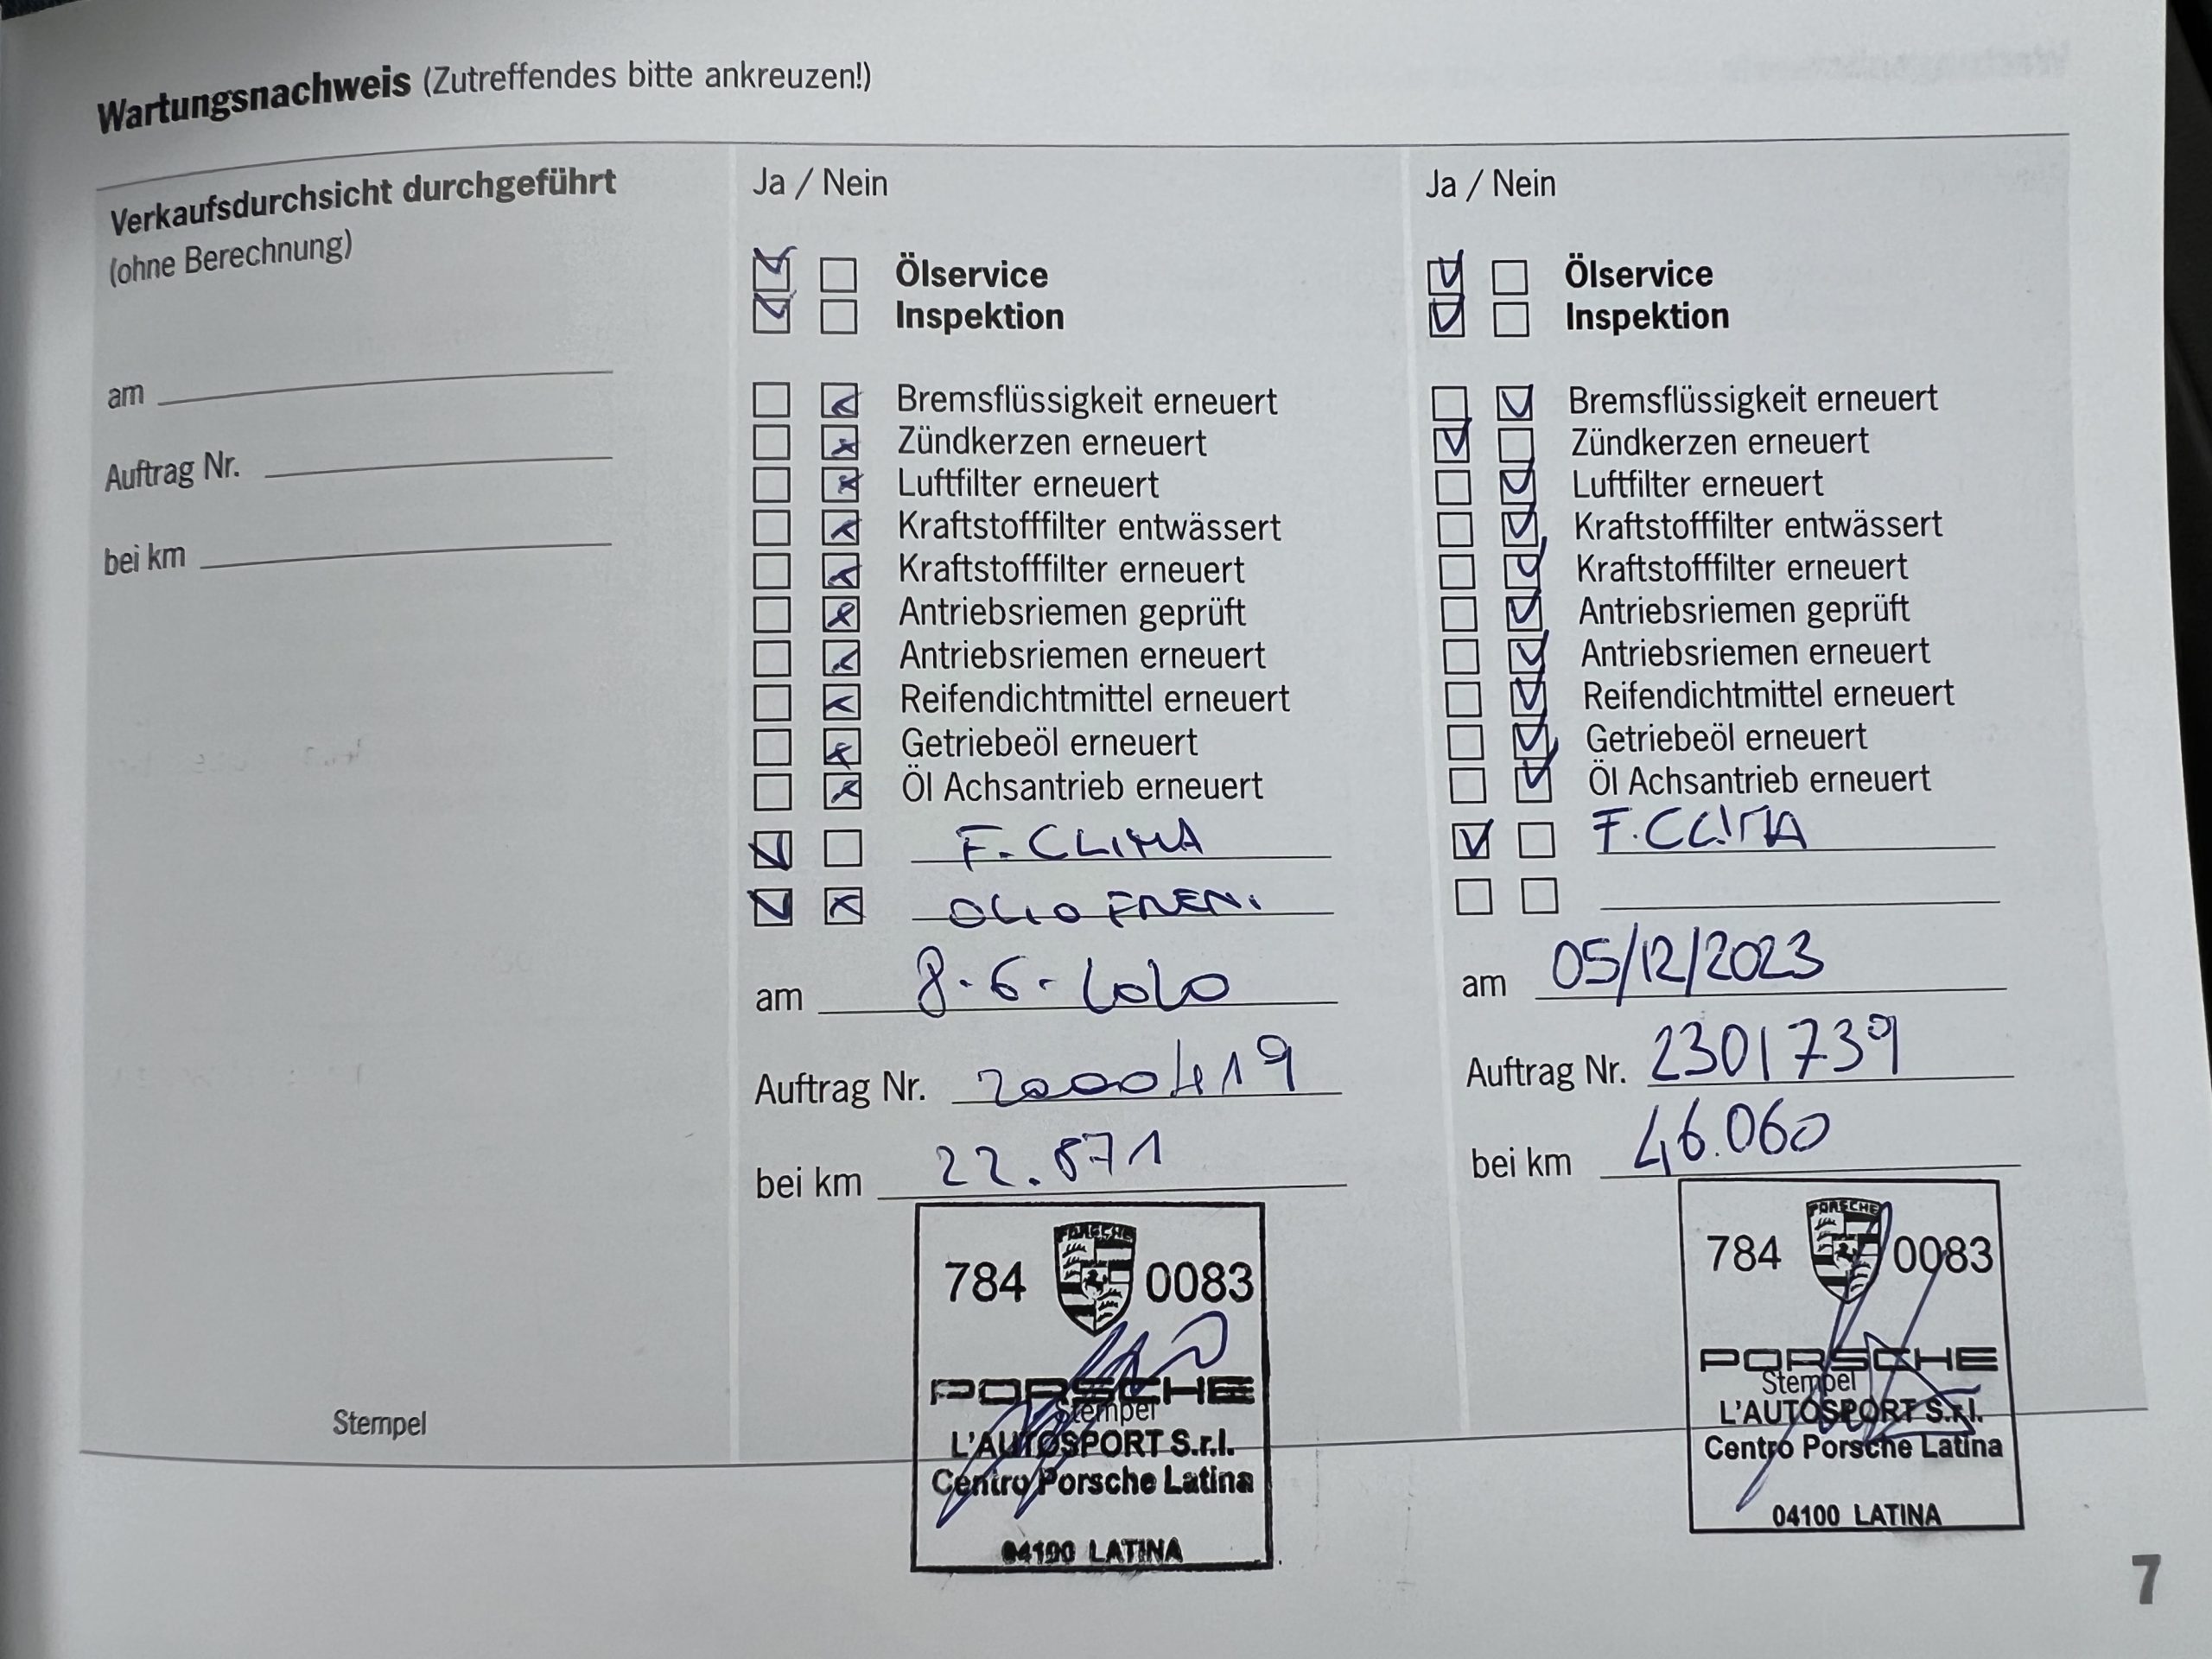 Wartungsnachweis (Zutreffendes bitte ankreuzen!)
Verkaufsdurchsicht durchgeführt
(ohne Berechnung)
am
Auftrag Nr.
bei km
Stempel
Ja / Nein
Ölservice
Inspektion
Bremsflüssigkeit erneuert
Zündkerzen erneuert
Luftfilter erneuert
Kraftstofffilter entwässert
Kraftstofffilter erneuert
Antriebsriemen geprüft
Antriebsriemen erneuert
Reifendichtmittel erneuert
Getriebeöl erneuert
Öl Achsantrieb erneuert
F. CLIMA
OLIO FRENI
am 8-6-2020
Auftrag Nr. 2000419
bei km 22.871
784 PORSCHE 0083
PORSCHE
Stempel
L'AUTOSPORT S.r.l.
Centro Porsche Latina
04100 LATINA
Ja / Nein
Ölservice
Inspektion
Bremsflüssigkeit erneuert
Zündkerzen erneuert
Luftfilter erneuert
Kraftstofffilter entwässert
Kraftstofffilter erneuert
Antriebsriemen geprüft
Antriebsriemen erneuert
Reifendichtmittel erneuert
Getriebeöl erneuert
Öl Achsantrieb erneuert
F. CLIMA
am 05/12/2023
Auftrag Nr. 2301739
bei km 46.060
784 PORSCHE 0083
PORSCHE
Stempel
L'AUTOSPORT S.r.l.
Centro Porsche Latina
04100 LATINA
7